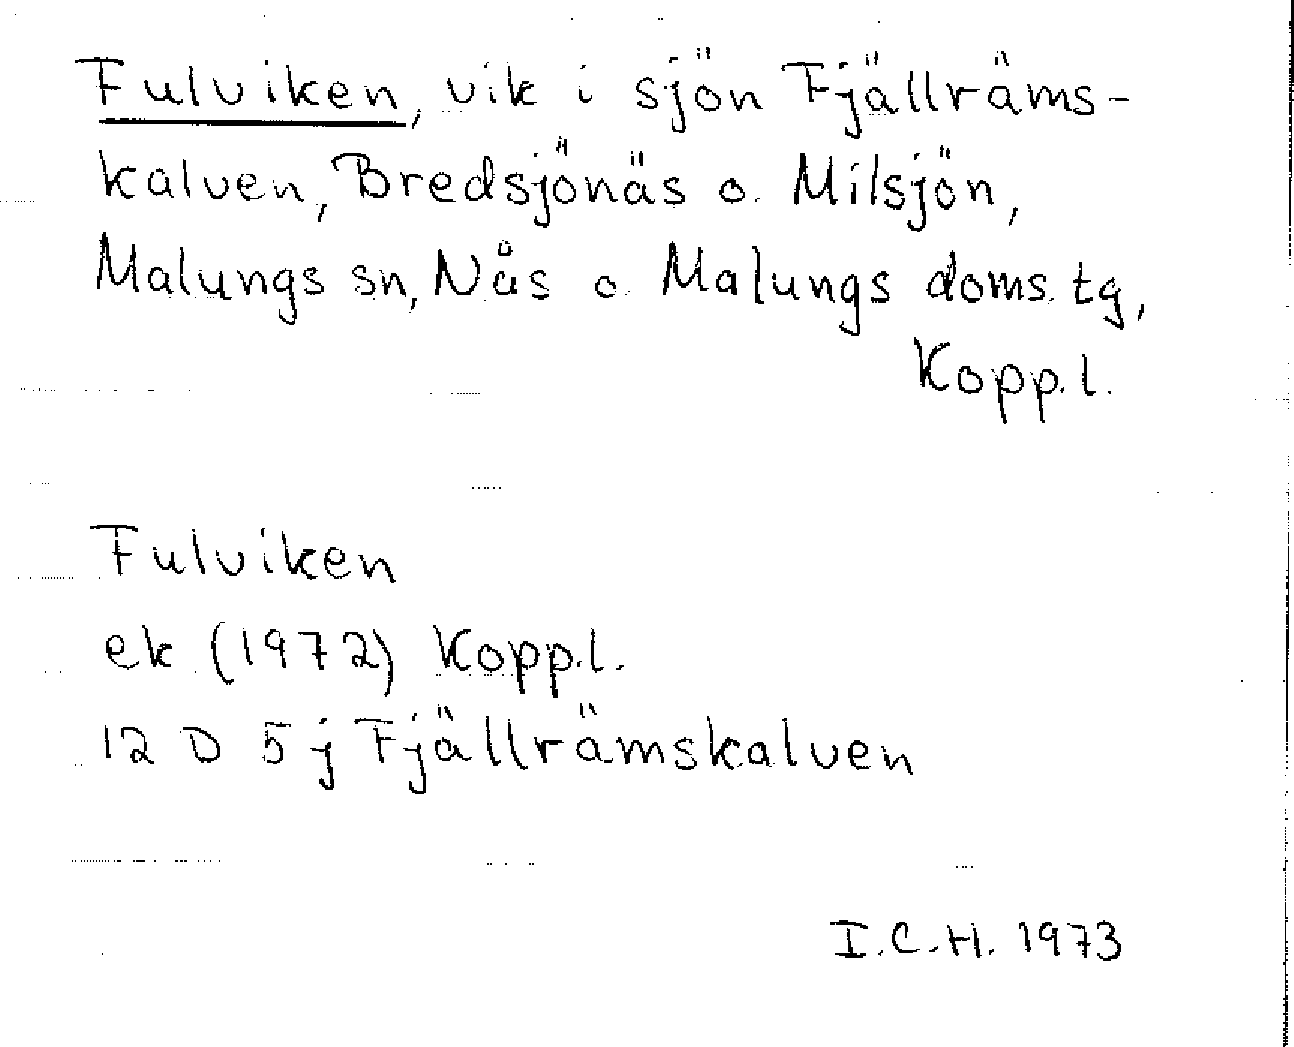 Fulviken, vik i sjön Fjällräms-
kalven, Bredsjönäs o. Milsjön,
Malungs sn, Nås o. Malungs doms. tg,
Kopp.l.
Fulviken
ek (1972) Kopp.l.
12 D 5 j Fjällrämskalven
I.C.H. 1973